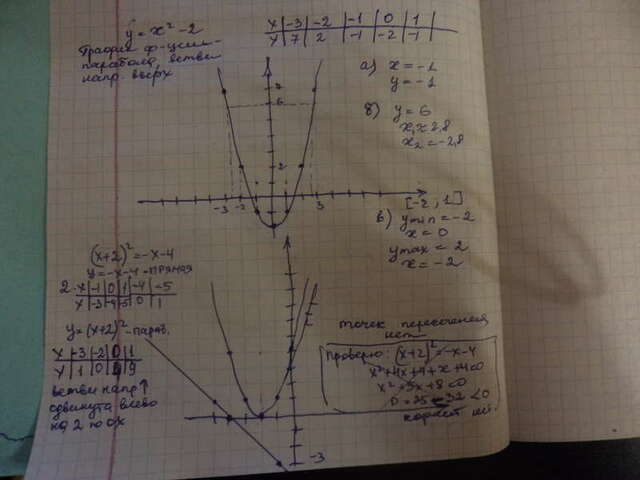 y = x² - 2
График ф-ции -
парабола, ветви
напр. вверх
x | -3 | -2 | -1 | 0 | 1
y | 7 | 2 | -1 | -2 | -1
а) x = -1
y = -1
б) y = 6
x₁ ≈ 2,8
x₂ = -2,8
7
6
2
-3 -2 3
[-2 ; 1]
в) y min = -2
x = 0
y max = 2
x = -2
(x+2)² = -x-4
y = -x-4 - прямая
2. x | -1 | 0 | 1 | -4 | -5
y | -3 | -4 | -5 | 0 | 1
y = (x+2)² - параб.
x | -3 | -2 | 0 | 1
y | 1 | 0 | 4 | 9
ветви напр ↑
сдвинута влево
на 2 по ох
-3
точек пересечения
нет
Проверю: (x+2)² = -x-4
x²+4x+4+x+4=0
x²+5x+8=0
D = 25-32 < 0
корней нет.